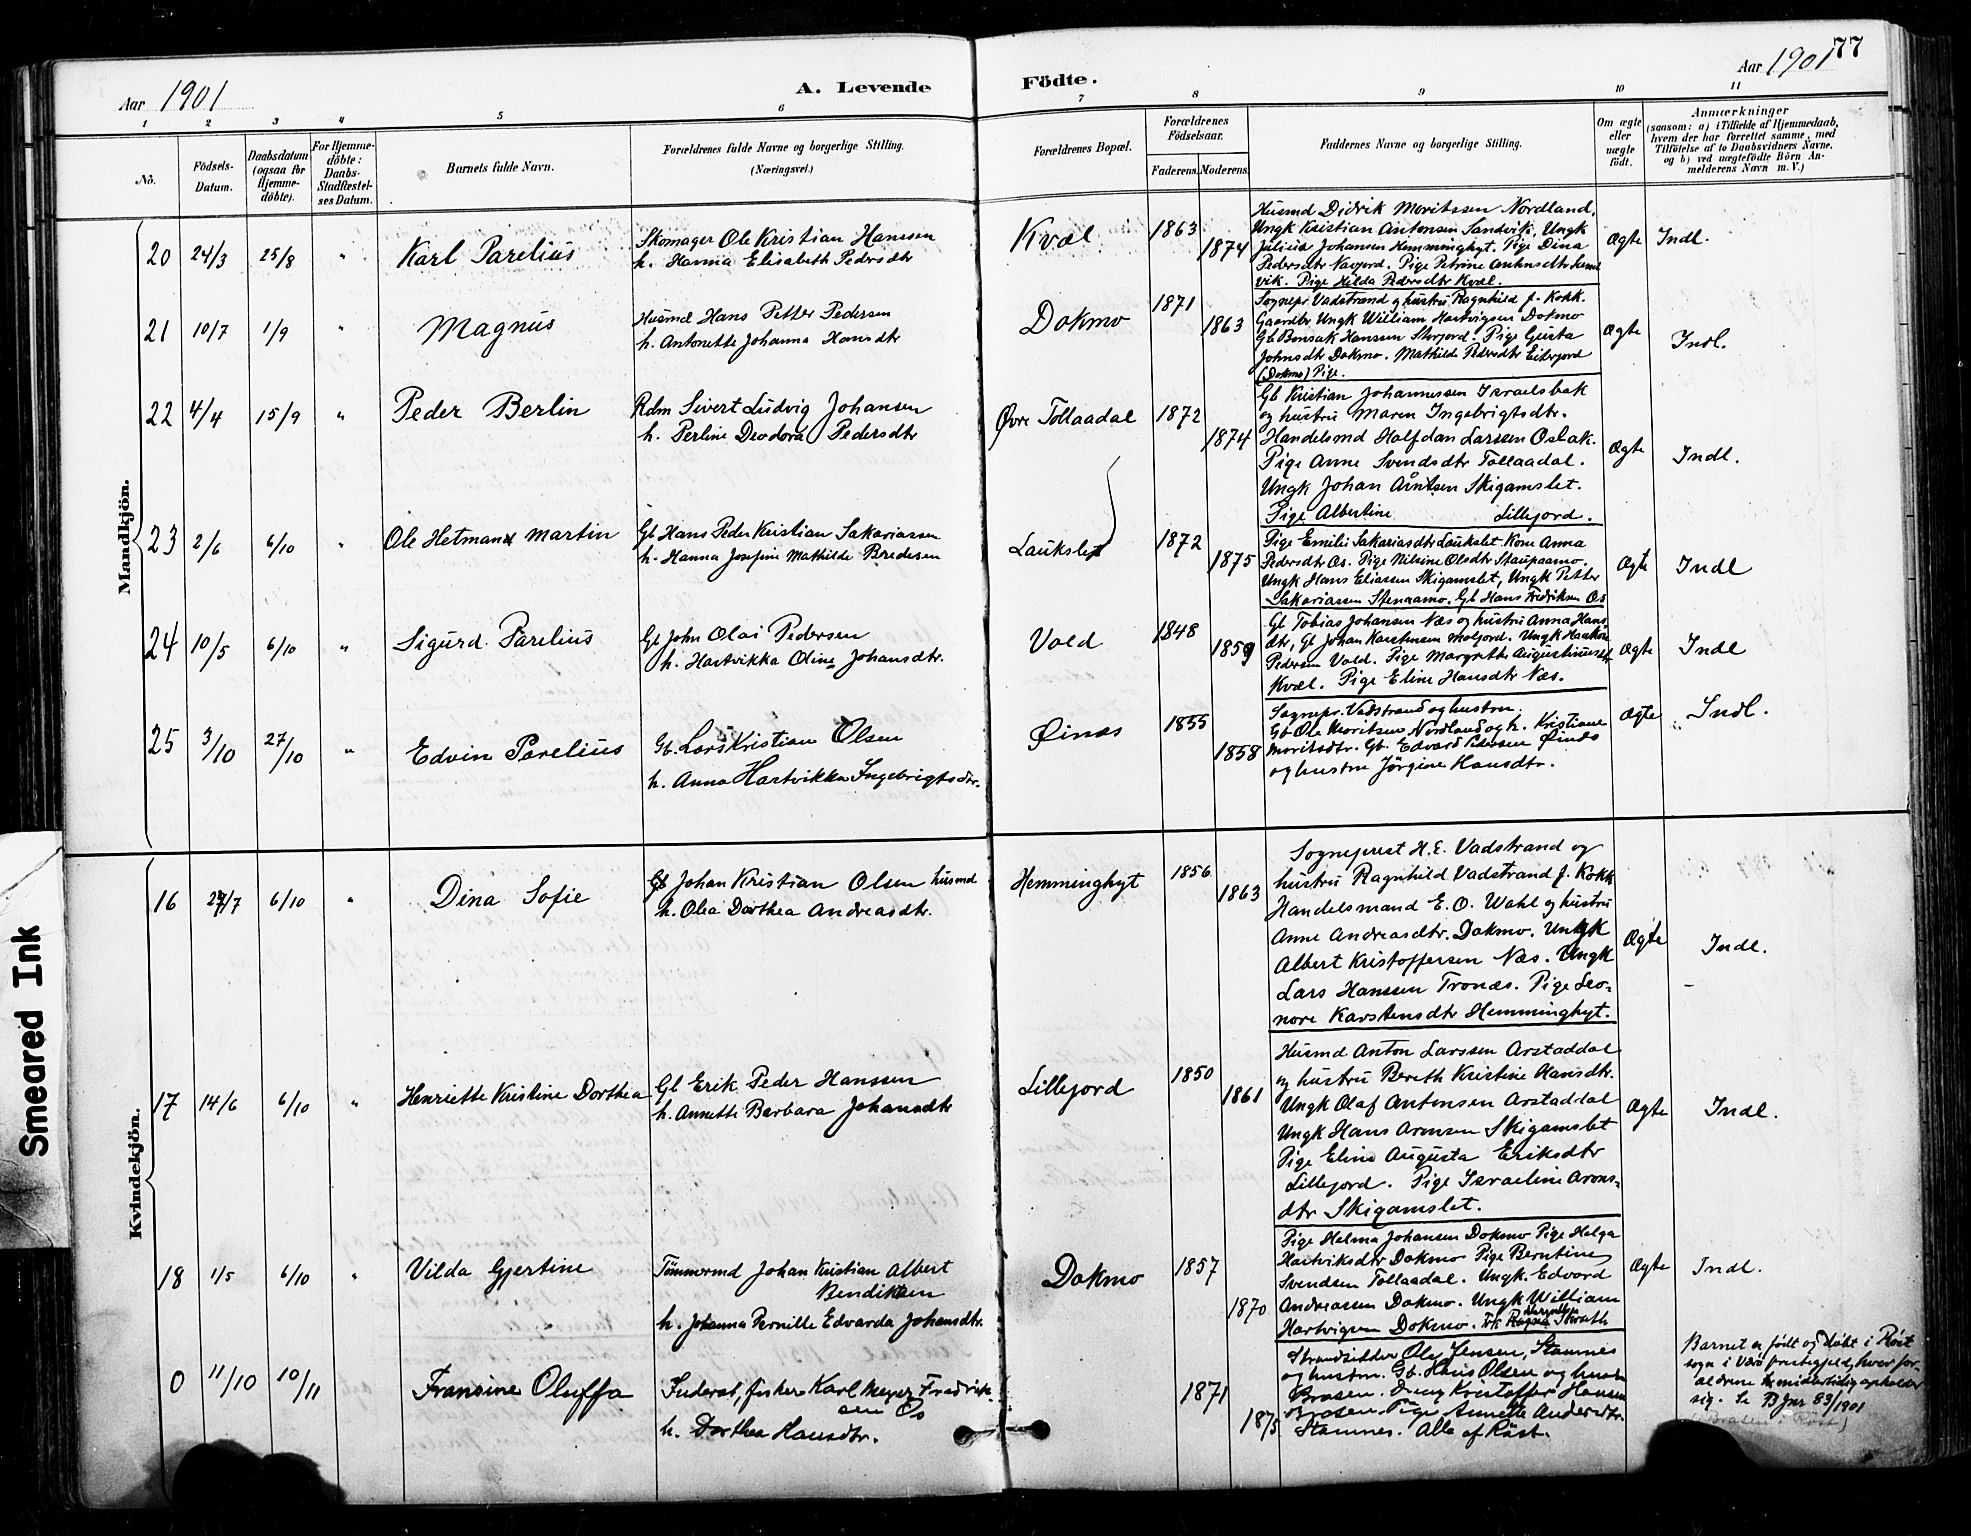 77
Aar 1901
A. Levende
Födte.
Aar 1901
1 2 3 4 5 6 7 8 9 10 11
No.
Födsels-
Datum.
Daabsdatum
(ogsaa for
Hjemme-
döbte).
For Hjemme-
döbte:
Daabs-
Stadfæstel-
ses Datum.
Barnets fulde Navn.
Forældrenes fulde Navne og borgerlige Stilling.
(Næringsvei.)
Forældrenes Bopæl.
Forældrenes
Födselsaar.
Faderens. Moderens.
Faddernes Navne og borgerlige Stilling.
Om ægte
eller
uægte
födt.
Anmærkninger
(saasom: a) i Tilfælde af Hjemmedaab,
hvem der har forrettet samme, med
Tilföielse af to Daabsvidners Navne,
og b) ved uægtefödte Börn An-
melderens Navn m. V.)
Mandkjön.
20 24/3 25/8 " Karl Parelius
Skomager Ole Kristian Hanssen
h. Hanna Elisabeth Pedersdtr
Kvæl 1863 1874
Husmd Didrik Moritssen Nordland.
Ungk Kristian Antonsen Sandvik, Ungk
Julius Johansen Hemminghyt. Pige Dina
Pedersdtr Navjord. Pige Petrine
vik. Pige Hilda Pedersdtr Kvæl.
Ægte Indl.
21 10/7 1/9 " Magnus
Husmd Hans Petter Pedersen
h. Antonette Johanna Hansdtr
Dokmo 1871 1863
Sognepr Vadstrand og hustru Ragnhild f. Kokk.
Gaardbr Ungk William Hartvigsen Dokmo
Gb Bonsak Hanssen Storjord. Pige Gusta
Johnsdtr Dokmo. Mathilde Pedersdtr Eiterjord
(Dokmo) Pige.
Ægte Indl.
22 4/4 15/9 " Peder Berlin
Rdm Sivert Ludvig Johansen
h. Perline Deodora Pedersdtr
Øvre Tollaadal 1872 1874
Gb Kristian Johannessen Israelsbak
og hustru Maren Ingebrigtsdtr.
Handelsmd Halfdan Larssen Osbak.
Pige Anne Svendsdtr Tollaadal.
Ungk Johan Arntsen Skigamslet.
Pige Albertine Lillejord.
Ægte Indl.
23 2/6 6/10 " Ole Hetman Martin
Gb Hans Peder Kristian Sakariassen
h. Hanna Josefine Mathilde Bredesen
Laukslet 1872 1875
Pige Emilie Sakariasdtr Laukslet. Kone Anna
Pedersdtr Os. Pige Nilsine Olsdtr Staupaamo.
Ungk Hans Eliassen Skigamslet, Ungk Petter
Sakariassen Stenaamo. Gb Hans Fredriksen Os
Ægte Indl
24 10/5 6/10 " Sigurd Parelius
Gb John Olai Pedersen
h. Hartvikka Oline Johansdtr.
Vold 1848 1859
Gb Tobias Johansen Næs og hustru Anna Hans-
dtr, Gb Johan Karstensen Moljord. Ungk Haakon
Pedersen Vold. Pige Margrethe Augustinusdtr
Kvæl. Pige Eline Hansdtr Næs.
Ægte Indl
25 3/10 27/10 " Edvin Parelius
Gb. Lars Kristian Olsen
h. Anna Hartvikka Ingebrigtsdtr.
Øinæs 1855 1858
Sognepr. Vadstrand og hustru.
Gb Ole Moritsen Nordland og h. Kristiane
Moritsdtr. Gb. Edvard Pedersen Øinæs
og hustru Jörgine Hansdtr.
Ægte Indl.
Kvindekjön.
16 27/7 6/10 " Dina Sofie
Gb Johan Kristian Olsen husmd
h. Olea Dorthea Andreasdtr.
Hemminghyt 1856 1863
Sogneprest H. E. Vadstrand og
hustru Ragnhild Vadstrand f. Kokk
Handelsmand E. O. Wahl og hustru
Anne Andreasdtr. Dokmo. Ungk
Albert Kristoffersen Næs. Ungk
Lars Hanssen Tronæs. Pige Leo-
nore Karstensdtr Hemminghyt.
Ægte Indl.
17 14/6 6/10 " Henriette Kristine Dorthea
Gb Erik Peder Hanssen
h. Annette Barbara Johansdtr
Lillejord 1850 1861
Husmd Anton Larssen Arstaddal
og hustru Bereth Kristine Hansdtr.
Ungk Olaf Antonsen Arstaddal
Ungk Hans Aronsen Skigamslet
Pige Eline Augusta Eriksdtr
Lillejord. Pige Israeline Arons-
dtr Skigamslet.
Ægte Indl.
18 1/5 6/10 " Vilda Gjertine
Tömmermd Johan Kristian Albert
Bendiksen
h. Johanna Pernille Edvarda Johansdtr.
Dokmo 1857 1870
Pige Helma Johansen Dokmo Pige Helga
Hartviksdtr Dokmo Pige Berntine
Svendsen Tollaadal. Ungk. Edvard
Andreassen Dokmo. Ungk William
Hartvigsen Dokmo.
Ægte Indl.
0 11/10 10/11 Fransine Oluffa
Inderst, fisker Karl Meyer Fredrik-
sen Os
h. Dorthea Hansdtr.
1871 1875
Strandsidder Ole Jensen, Stamnes
og hustru. Gb. Hans Olsen og hustru
Brasen. Ung Kristoffer Hansen
Brasen. Pige Annette Andersdtr.
Stamnes. Alle af Röst.
Barnet er födt og döbt i Röst
sogn i Værö prestegjeld, hvor for-
ældrene midlertidig opholder
sig. Se B Jnr 83/1901
Smeared Ink